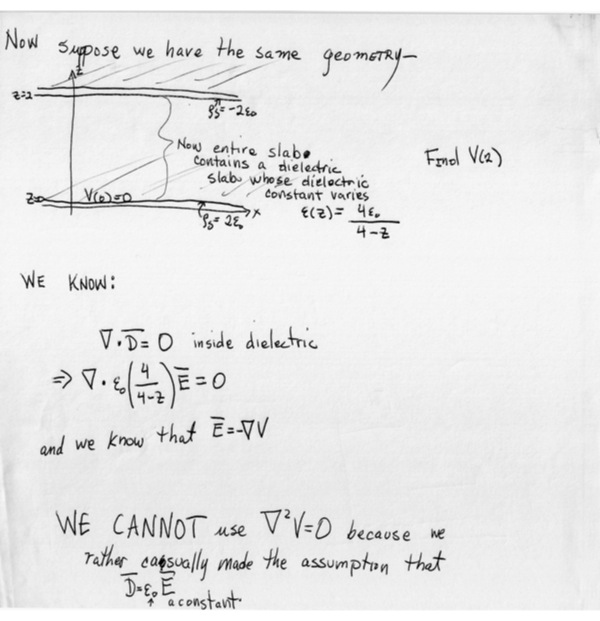 Now suppose we have the same geometry—
z
z=2
ρs=-2ε₀
Now entire slab
contains a dielectric
slab whose dielectric
constant varies
ε(z)= 4ε₀/(4-z)
Find V(2)
z=0 V(0)=0
ρs= 2ε₀
x
WE KNOW:
∇·D̅= 0 inside dielectric
⇒ ∇·ε₀(4/(4-z))E̅=0
and we know that E̅=-∇V
WE CANNOT use ∇²V=0 because we
rather casually made the assumption that
D̅=ε₀E̅
↑ a constant.